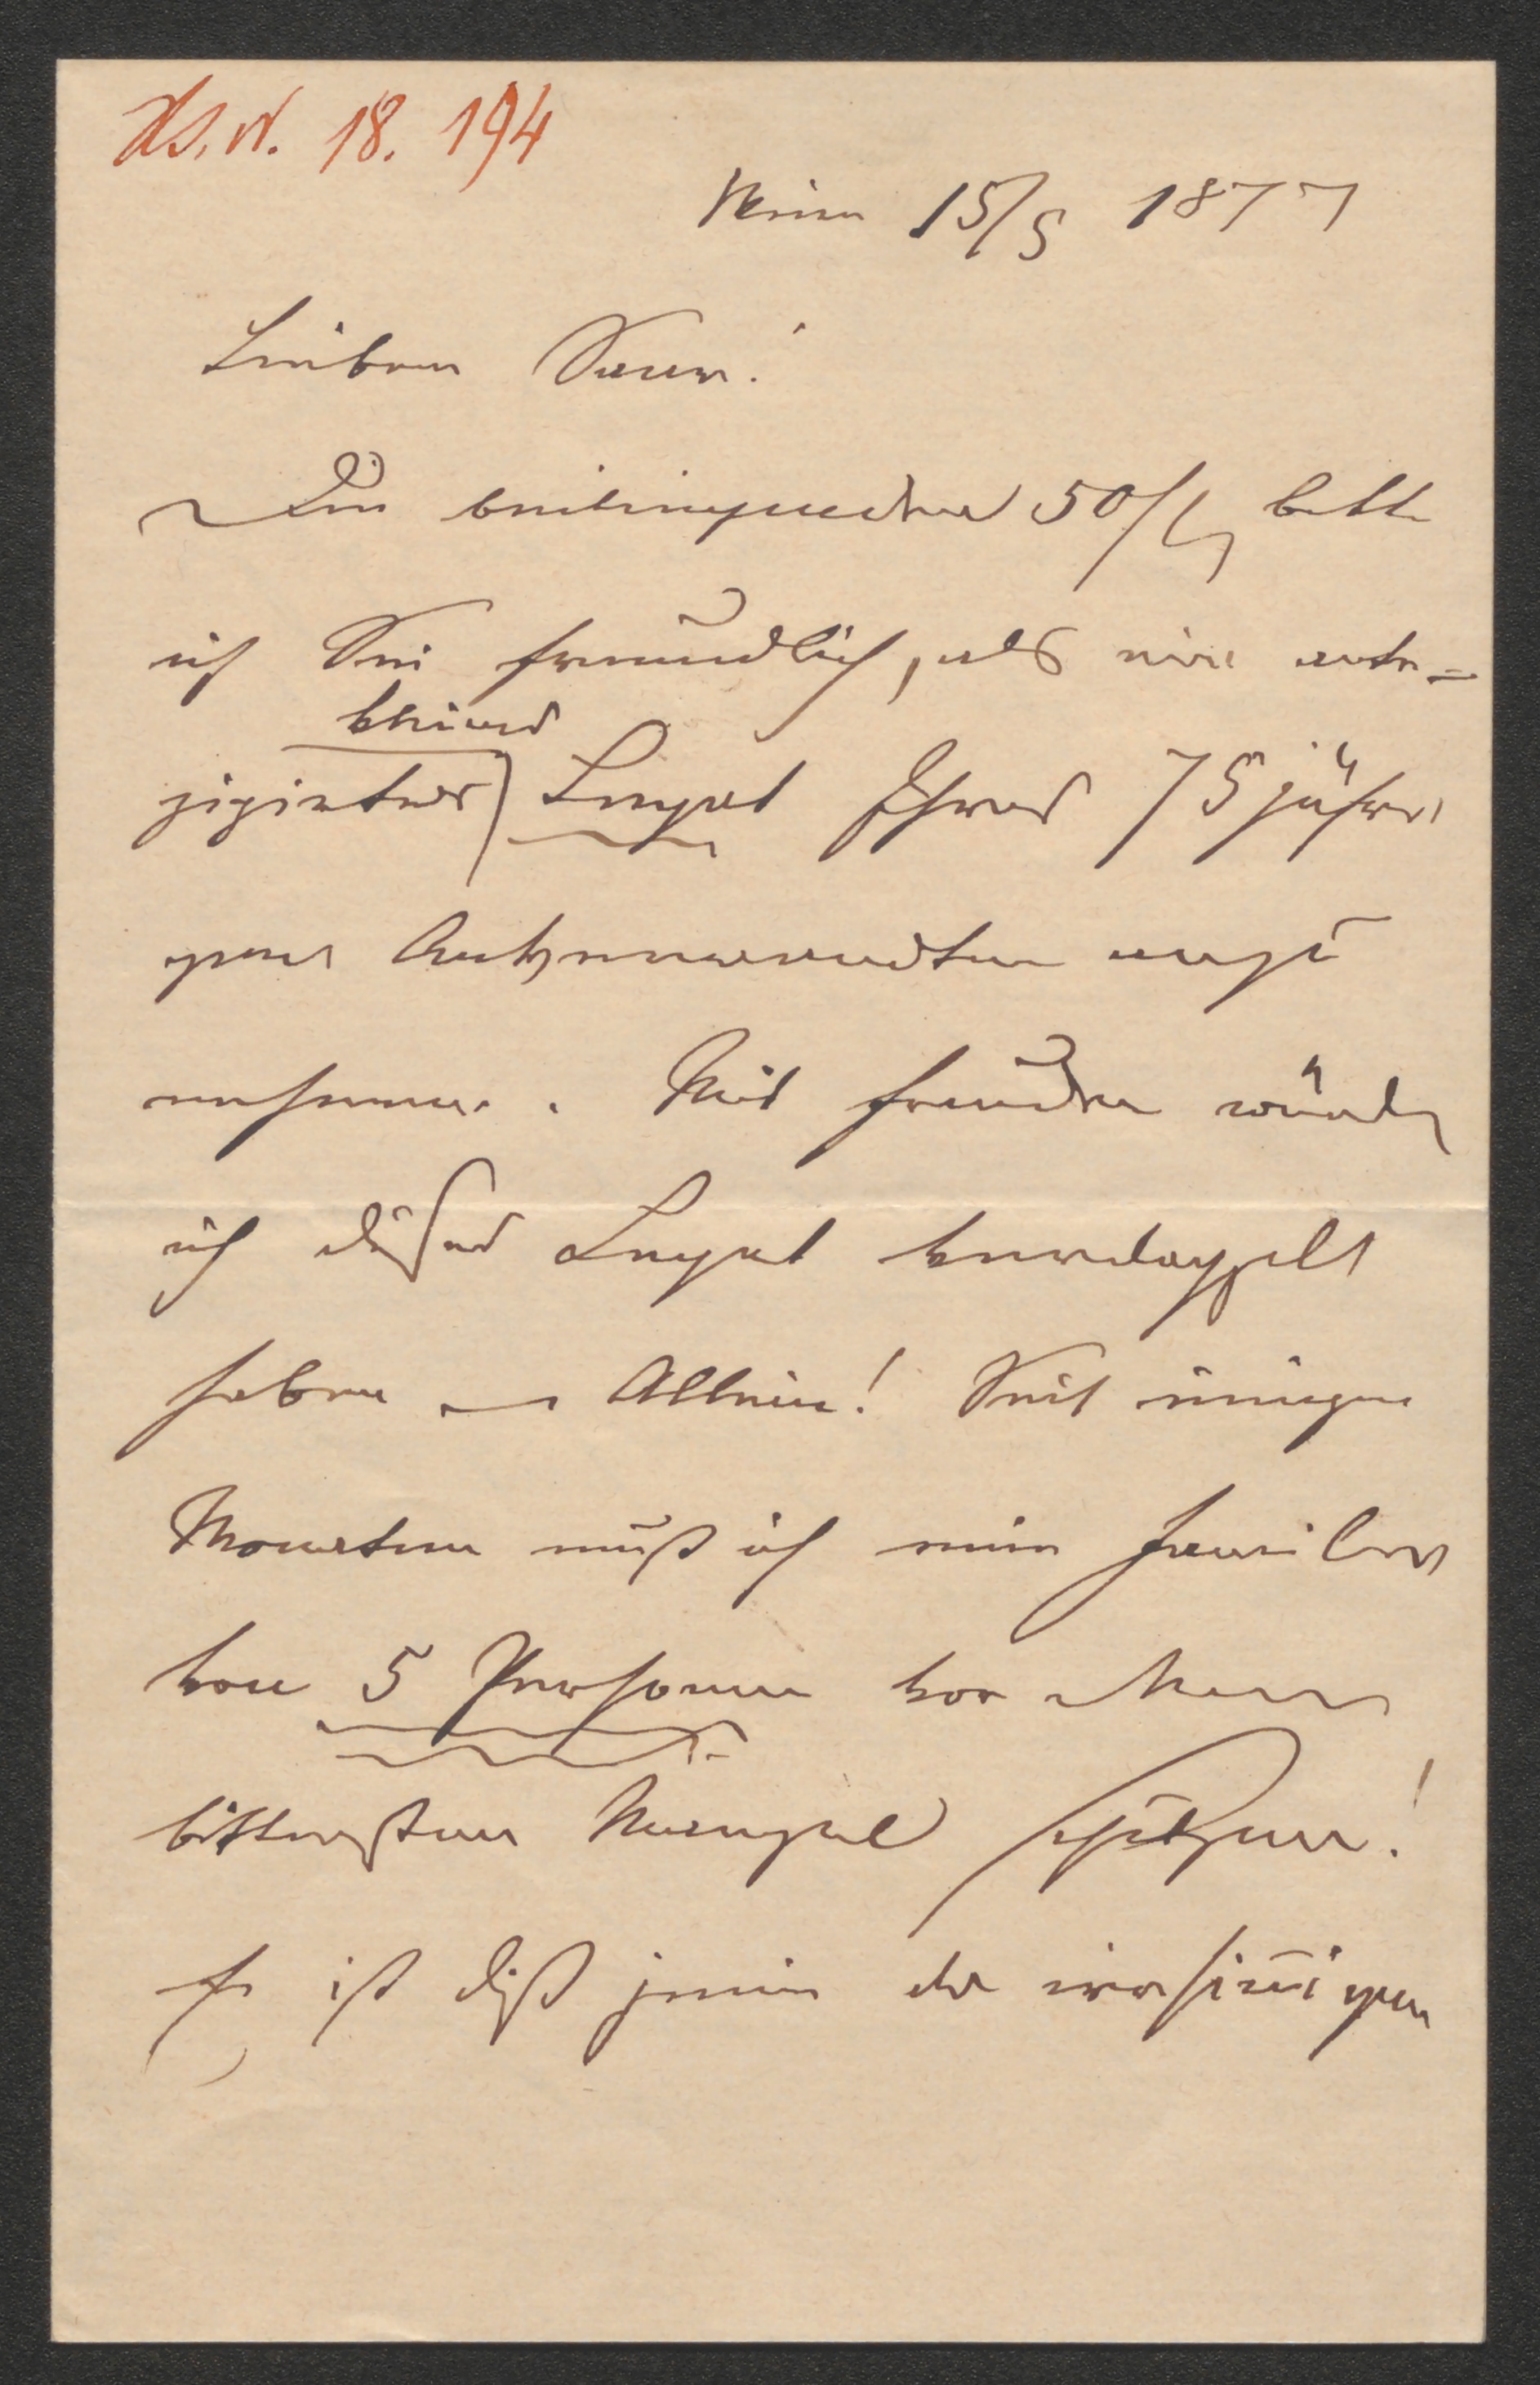 Hs. N. 18. 194
Wien 15/5 1877
Lieber Sauer!
Die beiliegenden 50 f bitte
ich Sie freundlich, als ein antizipirtes
kleines
Legat Ihres 75 jähri
gen Anverwandten anzu
nehmen. Mit Freuden würde
ich dieses Legat verdoppelt
haben – Allein! Seit einigen
Monaten muß ich eine Familie
von 5 Personen vor dem
bittersten Mangel schützen!
Es ist diß jene der irrsinnigen